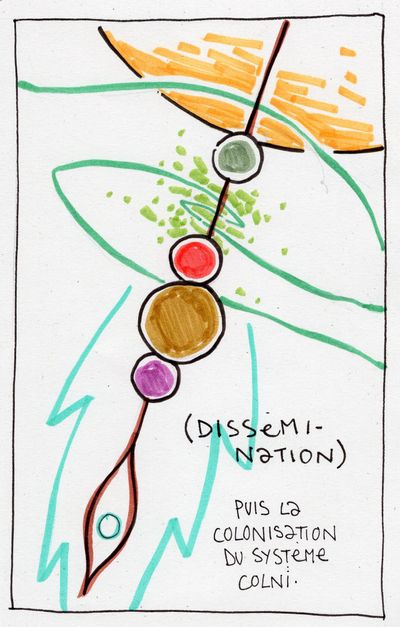 (DISSéMI-
NaTION)
PUIS La
COLONISaTION
DU SYSTèME
COLNi.